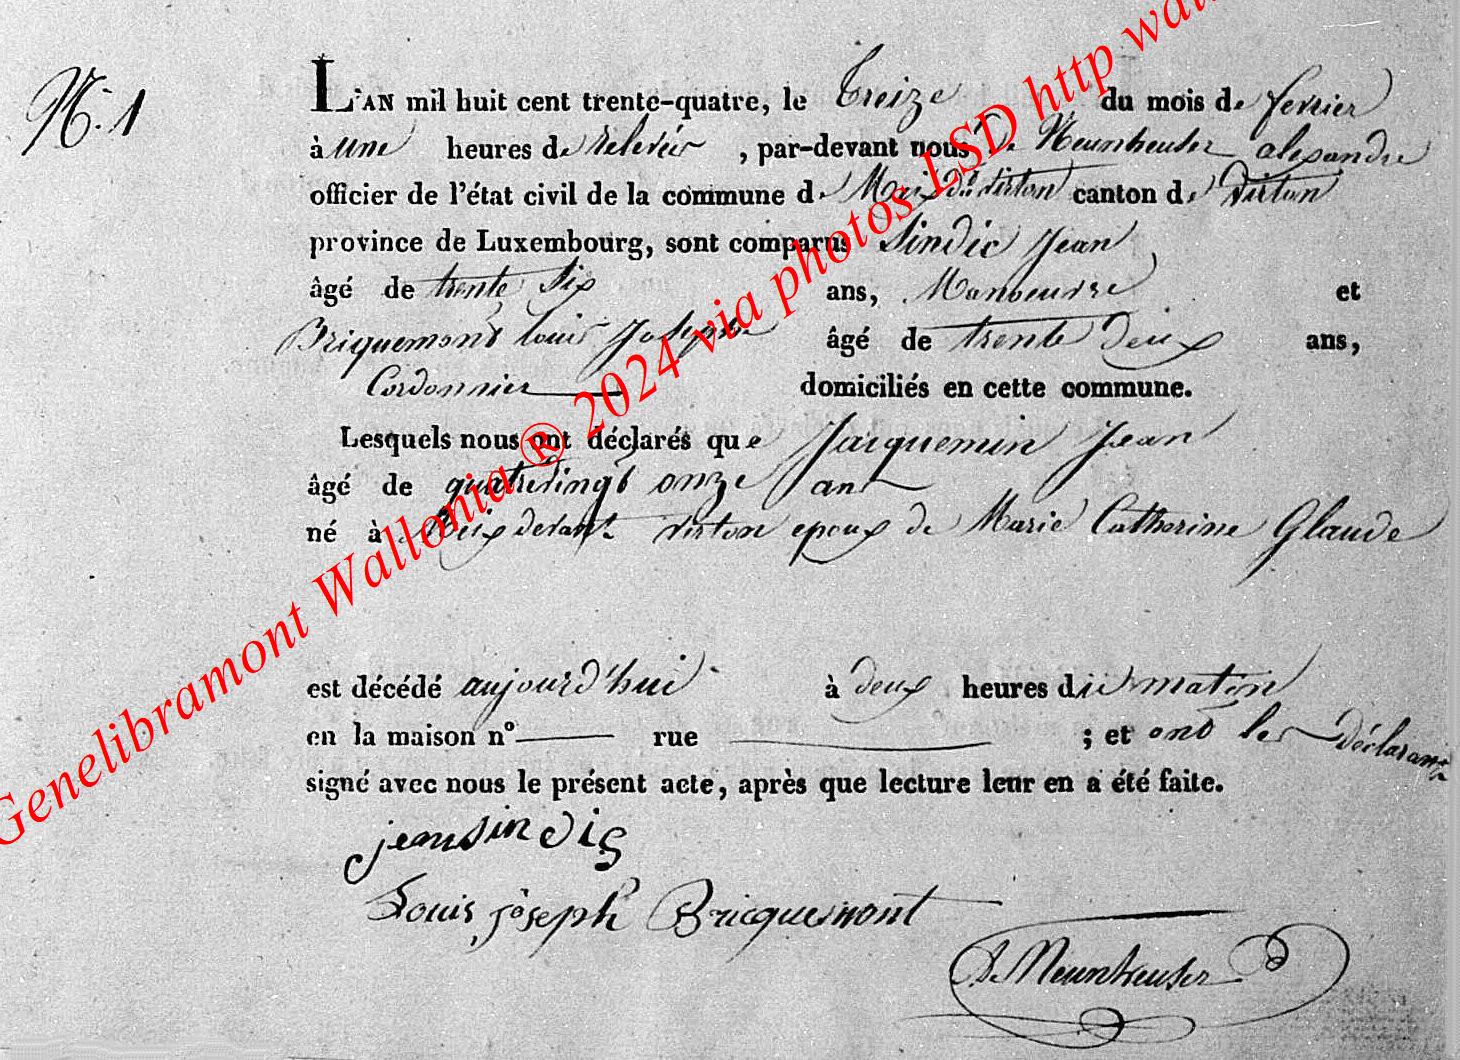 N.° 1
L'AN mil huit cent trente-quatre, le treize du mois de fevrier
à une heures de relevée, par-devant nous De Neunheuser alexandre
officier de l'état civil de la commune de Meix dt. virton canton de Virton
province de Luxembourg, sont comparus Sindic Jean
âgé de trente Six ans, Manoeuvre et
Briquemont louis Joseph âgé de trente Deux ans,
Cordonnier domiciliés en cette commune.
Lesquels nous ont déclarés que Jacquemin Jean
âgé de quatrevingt onze ans
né à Meix devant virton epoux de Marie Catherine Glaude
est décédé aujourd'hui à deux heures du matin
en la maison n° rue ; et ont les déclarants
signé avec nous le présent acte, après que lecture leur en a été faite.
jean sindic
Louis, joseph Bricquemont
De Neunheuser
Genelibramont Wallonia ® 2024 via photos LSD http wal